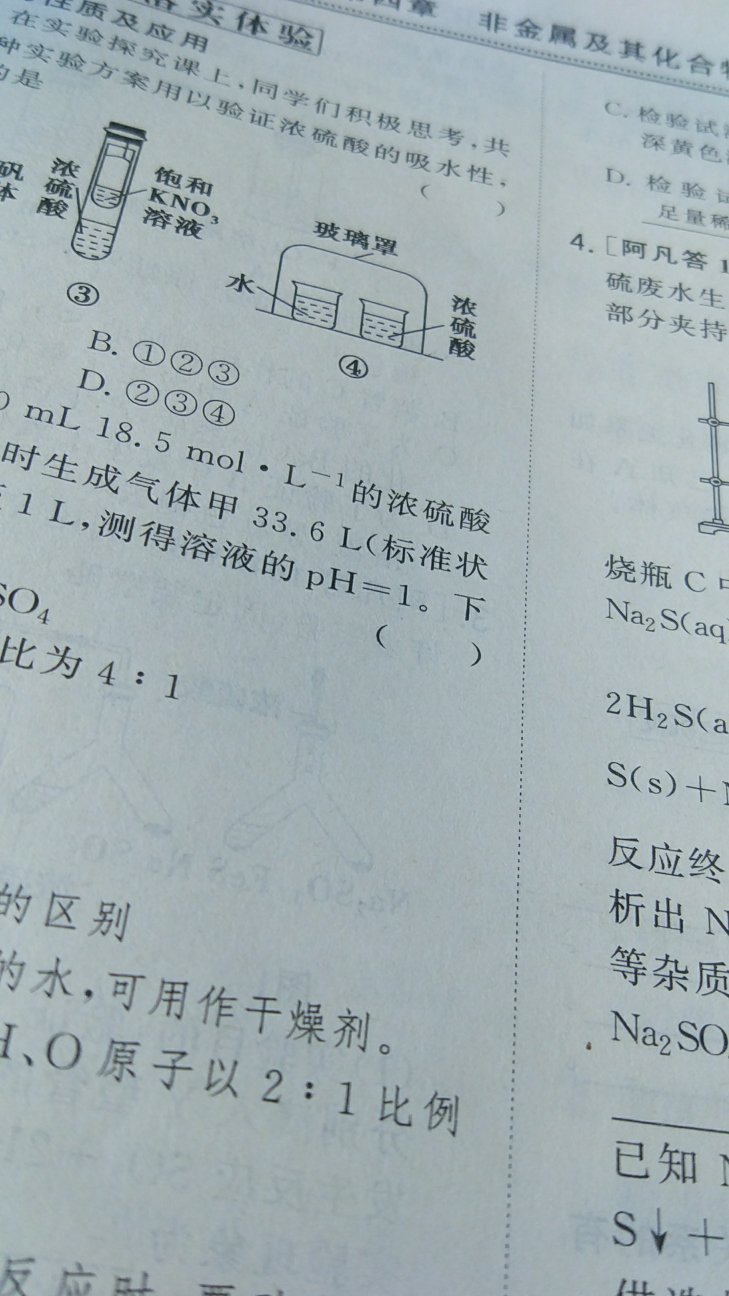 第四章 非金属及其化合物
落实体验
性质及应用
在实验探究课上,同学们积极思考,共
种实验方案用以验证浓硫酸的吸水性,
的是
( )
矾
体
浓硫酸
饱和
KNO3
溶液
③
玻璃罩
水
浓硫酸
④
B. ①②③
D. ②③④
0 mL 18.5 mol·L−1的浓硫酸
时生成气体甲 33.6 L(标准状
1 L,测得溶液的 pH=1。下
( )
SO4
比为 4:1
的区别
的水,可用作干燥剂。
H、O 原子以 2:1 比例
反应时
C. 检验试
深黄色
D. 检验试
足量稀
4. [阿凡答 1
硫废水生
部分夹持
烧瓶 C 中
Na2S(aq
2H2S(a
S(s)+
反应终
析出 N
等杂质
Na2SO
已知 N
S↓+